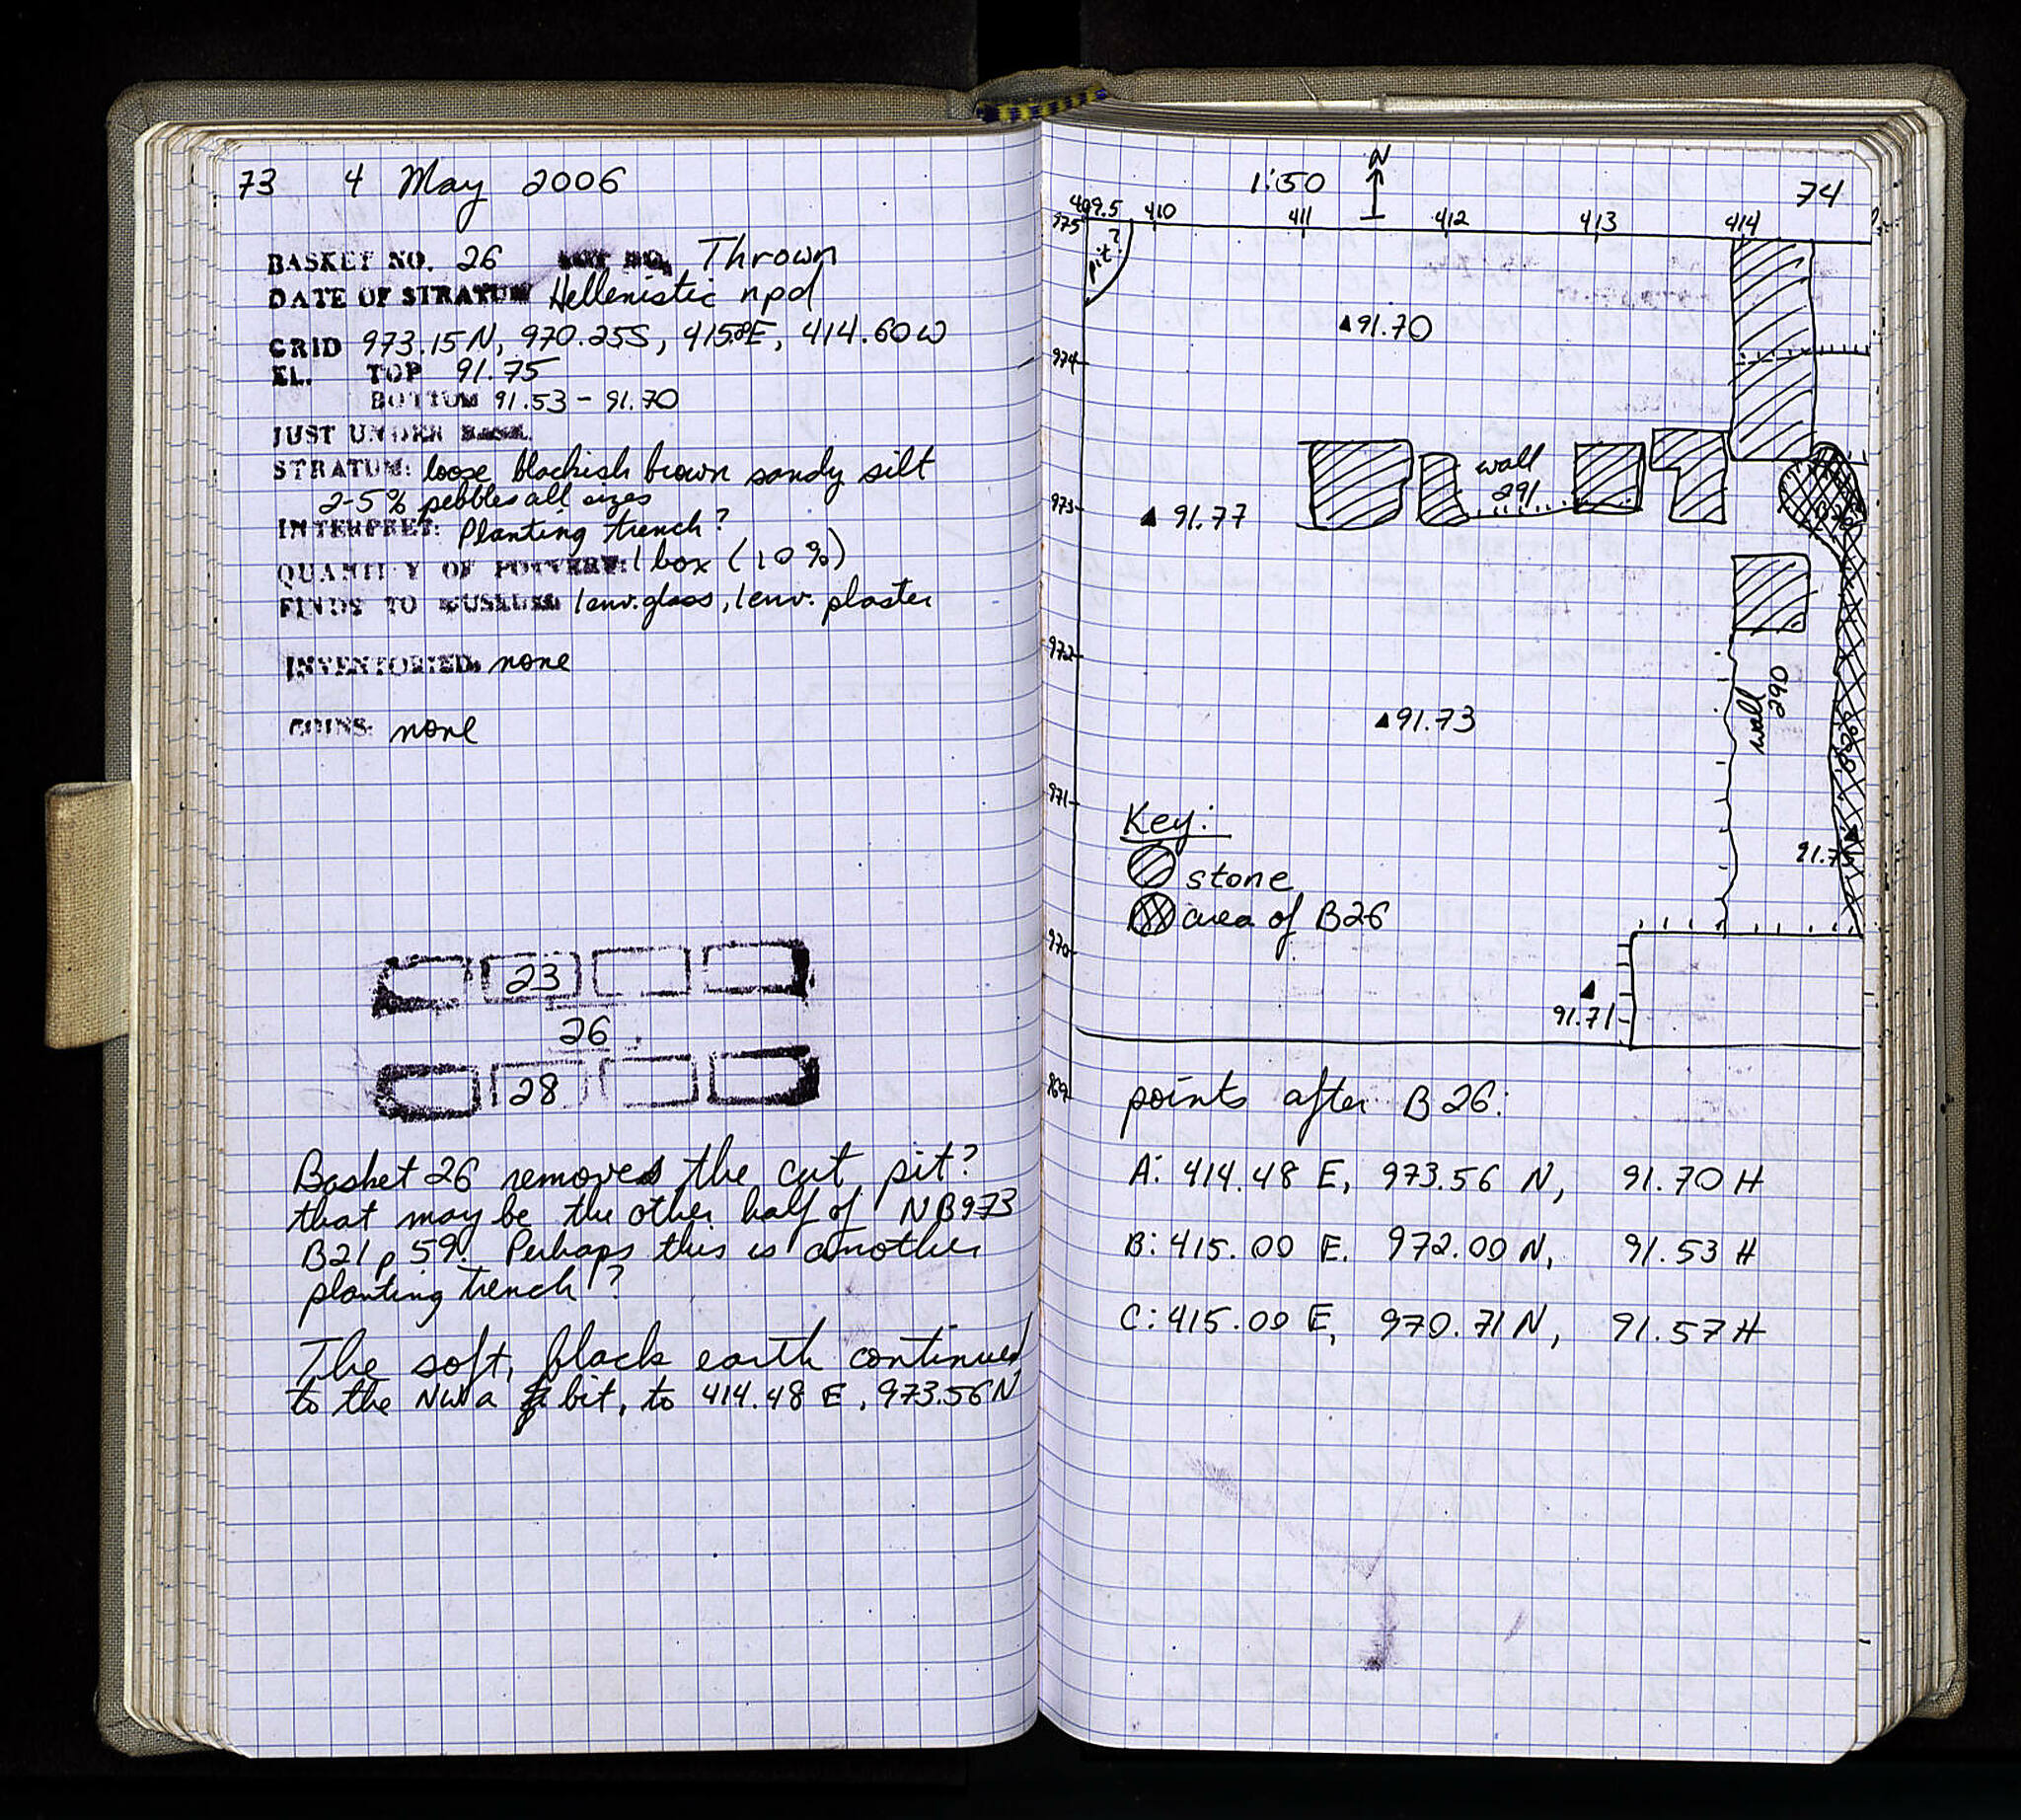 73 4 May 2006
BASKET NO. 26 LOT NO. Thrown
DATE OF STRATUM Hellenistic npd
GRID 973.15 N, 970.25S, E, 414.60 W
EL. TOP 91.75
BOTTOM 91.53 - 91.70
JUST UNDER BASK.
STRATUM: loose blackish brown sandy silt
2-5% pebbles all sizes
INTERPRET: Planting trench?
QUANTITY OF POTTERY: 1 box (10%)
FINDS TO MUSEUM: 1 env. glass, 1 env. plaster
INVENTORIED: none
COINS: none
23
26
28
Basket 26 removes the cut, pit?
that may be the other half of NB973
B21 p 59. Perhaps this is another
planting trench?
The soft, black earth continued
to the NW a bit, to 414.48 E, 973.56 N
1:50 N 74
409.5 410 411 412 413 414
975
pit ?
91.70
974
wall
291
973
91.77
B26
972
wall
290
91.73
B26
971
Key:
stone
area of B26
970
91.71
969
points after B 26:
A: 414.48 E, 973.56 N, 91.70 H
B: 415.00 E. 972.00 N, 91.53 H
C: 415.00 E, 970.71 N, 91.57 H